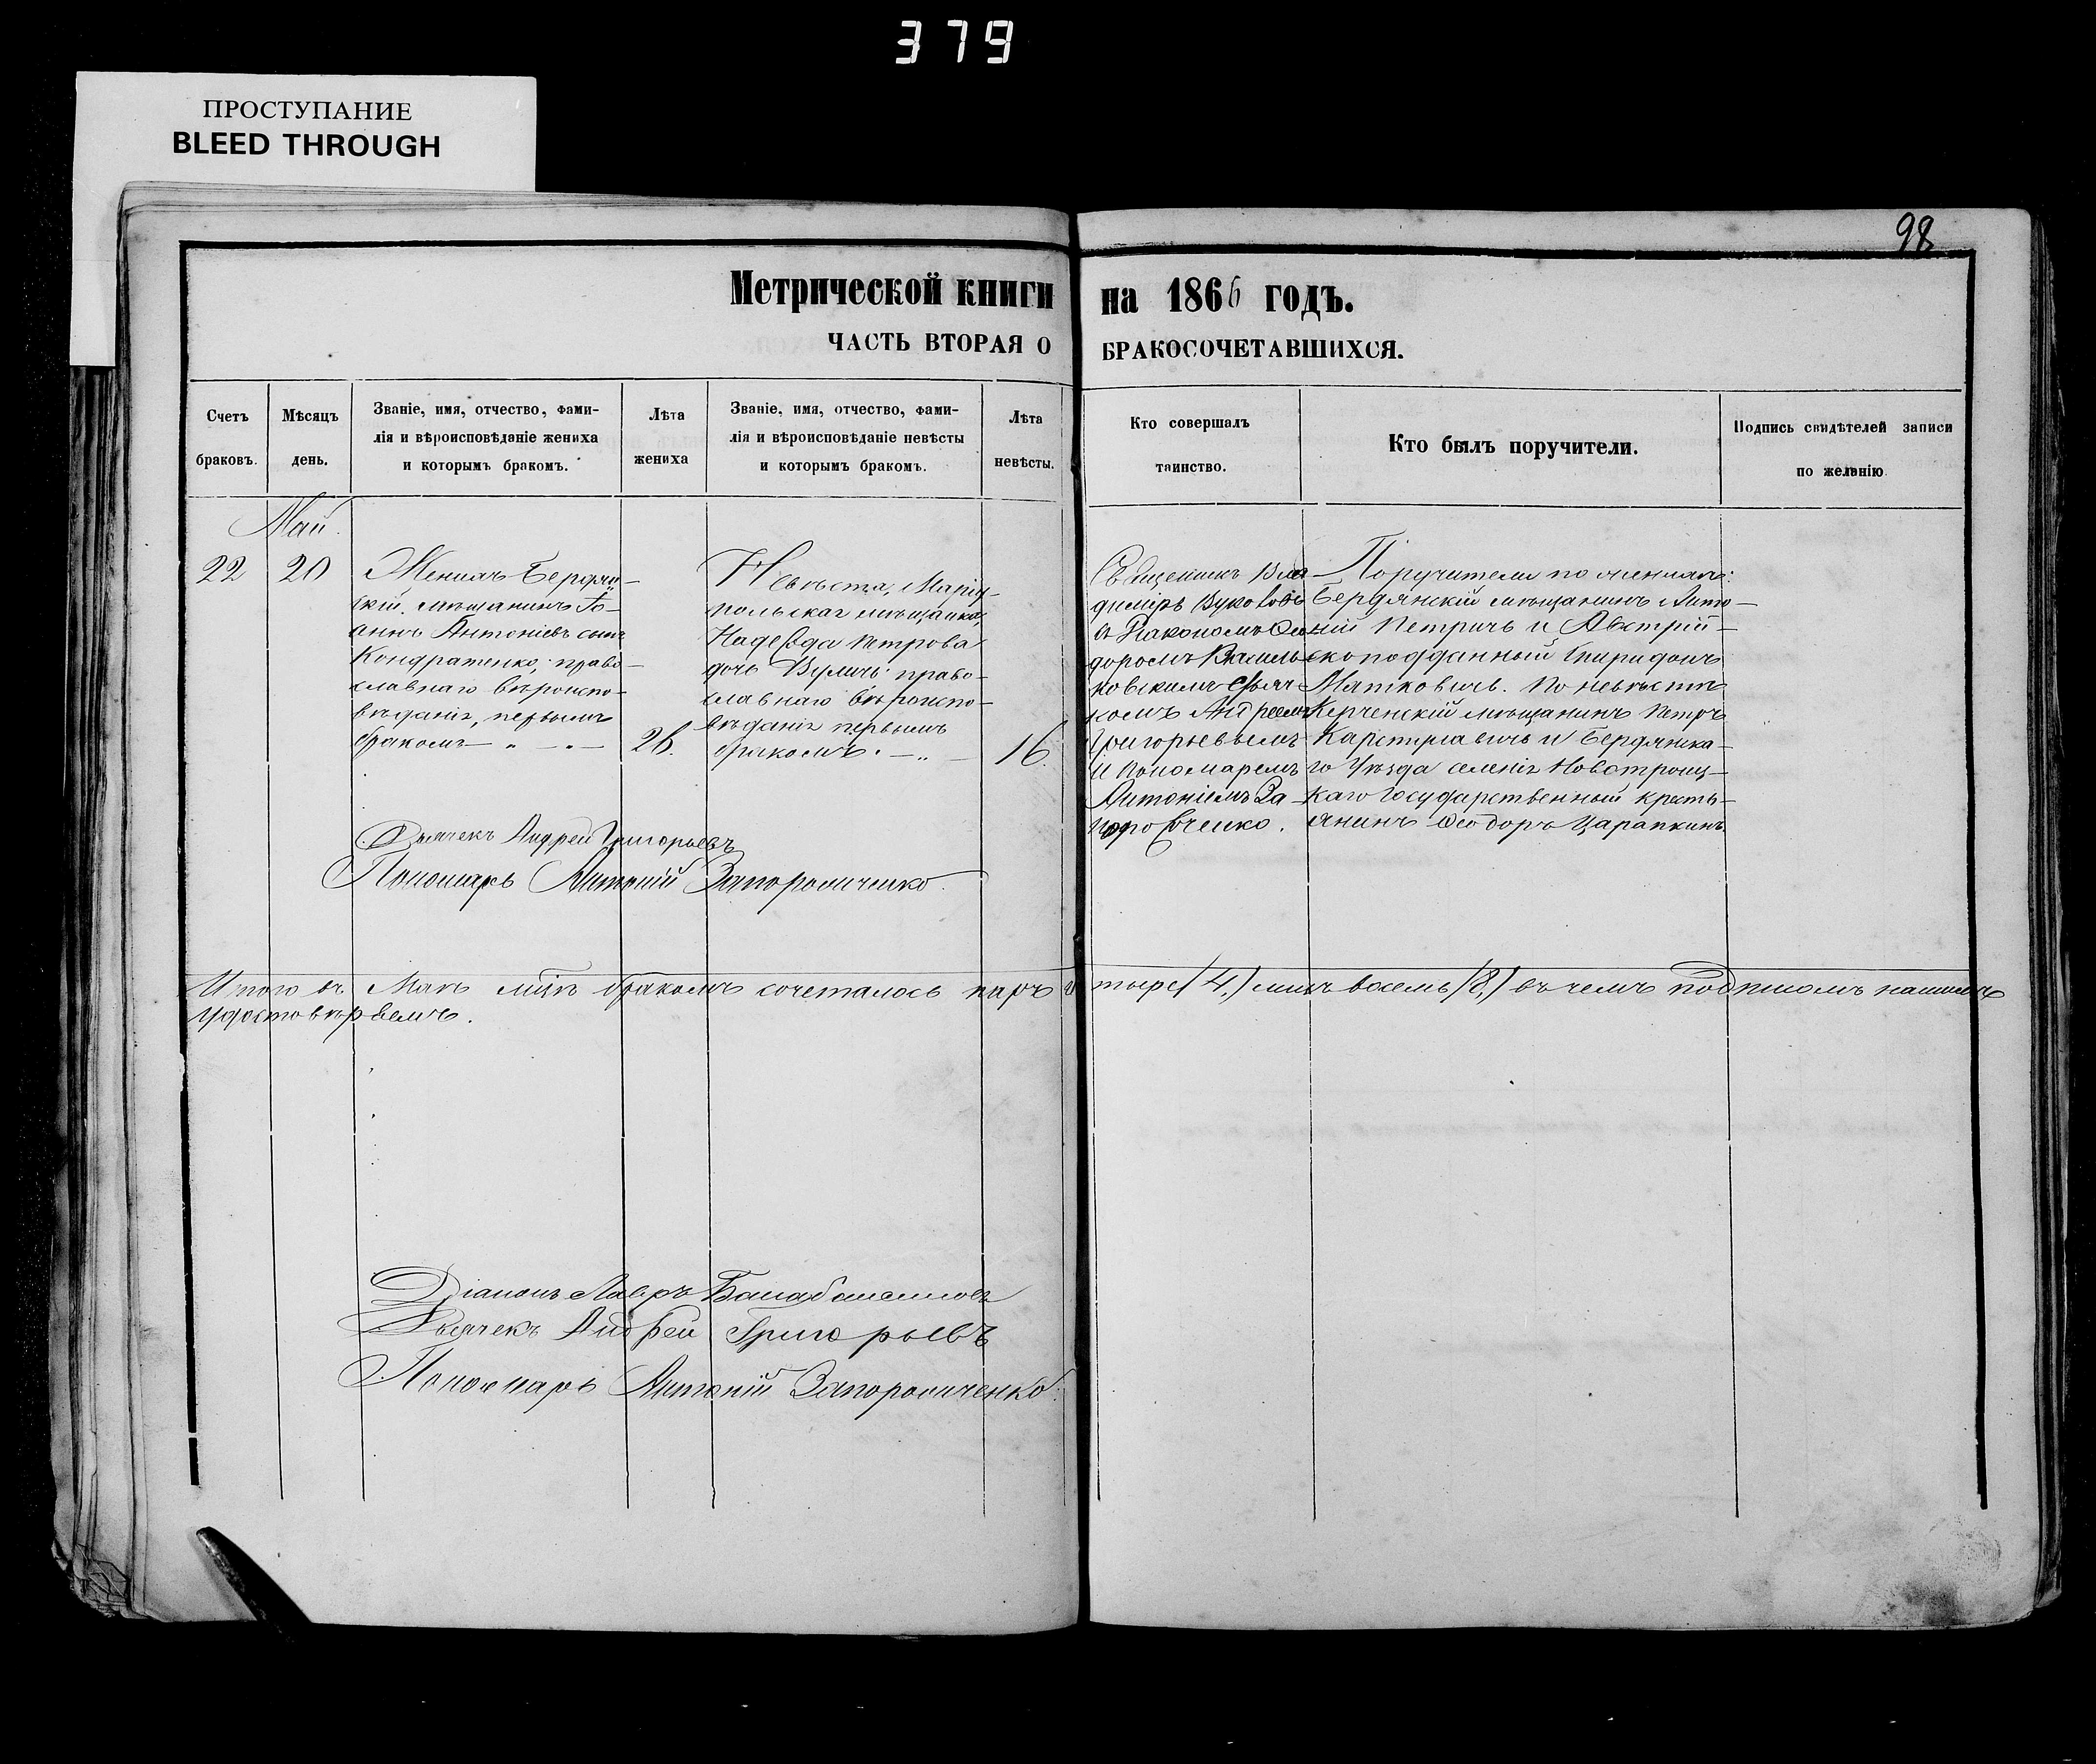 379
ПРОСТУПАНИЕ
BLEED THROUGH
98
Метрической книги на 1866 годъ.
ЧАСТЬ ВТОРАЯ О БРАКОСОЧЕТАВШИХСЯ.
Счетъ
браковъ.
Мѣсяцъ
день.
Званіе, имя, отчество, фами-
лія и вѣроисповѣданіе жениха
и которымъ бракомъ.
Лѣта
жениха
Званіе, имя, отчество, фами-
лія и вѣроисповѣданіе невѣсты
и которымъ бракомъ.
Лѣта
невѣсты.
Кто совершалъ
таинство.
Кто былъ поручители.
Подпись свидѣтелей записи
по желанію
Май.
22
20
Женихъ Бердян-
скій мѣщанинъ Іо-
аннъ Антоніевъ сынъ
Кондратенко, право-
славнаго вѣроиспо-
вѣданія, первымъ
бракомъ
26.
Невѣста, Маріу-
польская мѣщанка,
Надежда Петрова
дочь Вуличь право-
славнаго вѣроиспо-
вѣданія первымъ
бракомъ.
16.
Священникъ Вла-
диміръ Вуковичъ
съ Діакономъ Ѳео-
доромъ Василь-
ковскимъ Дьяч-
комъ Андреемъ
Григорьевымъ
и Пономаремъ
Антоніемъ За-
порожченко.
Поручители по женихѣ:
Бердянскій мѣщанинъ Анто-
ній Петричъ и Австрій-
скоподданный Спиридонъ
Мятковичъ. По невѣстѣ
Керченскій мѣщанинъ Петръ
и Бердянска-
го Уѣзда селенія Новотроиц-
каго Государственный кресть-
янинъ Ѳеодоръ Царапкинъ.
Дьячекъ Андрей Григорьевъ
Пономарь Антоній Запорожченко.
Итого въ Маѣ мцѣ бракомъ сочеталось паръ четыре (4.) лицъ восемь (8.) въ чемъ подписомъ нашимъ
удостовѣряемъ.
Діаконъ Лавръ
Дьячекъ Андрей Григорьевъ
Пономарь Антоній Запорожченко.